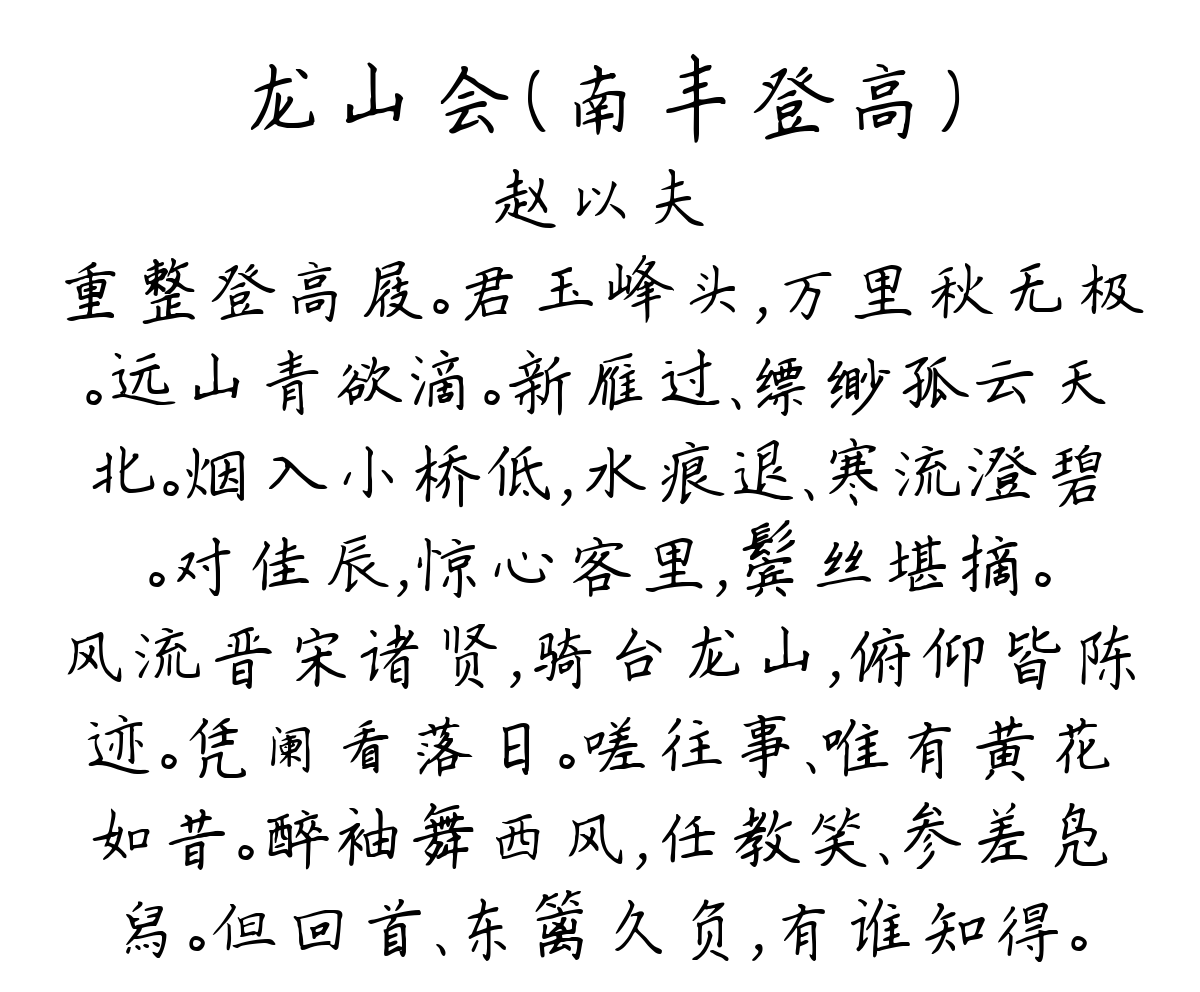 龙山会(南丰登高)
赵以夫
重整登高屐。君玉峰头,万里秋无极
。远山青欲滴。新雁过、缥缈孤云天
北。烟入小桥低,水痕退、寒流澄碧
。对佳辰,惊心客里,鬓丝堪摘。
风流晋宋诸贤,骑台龙山,俯仰皆陈
迹。凭阑看落日。嗟往事、唯有黄花
如昔。醉袖舞西风,任教笑、参差凫
舄。但回首、东篱久负,有谁知得。